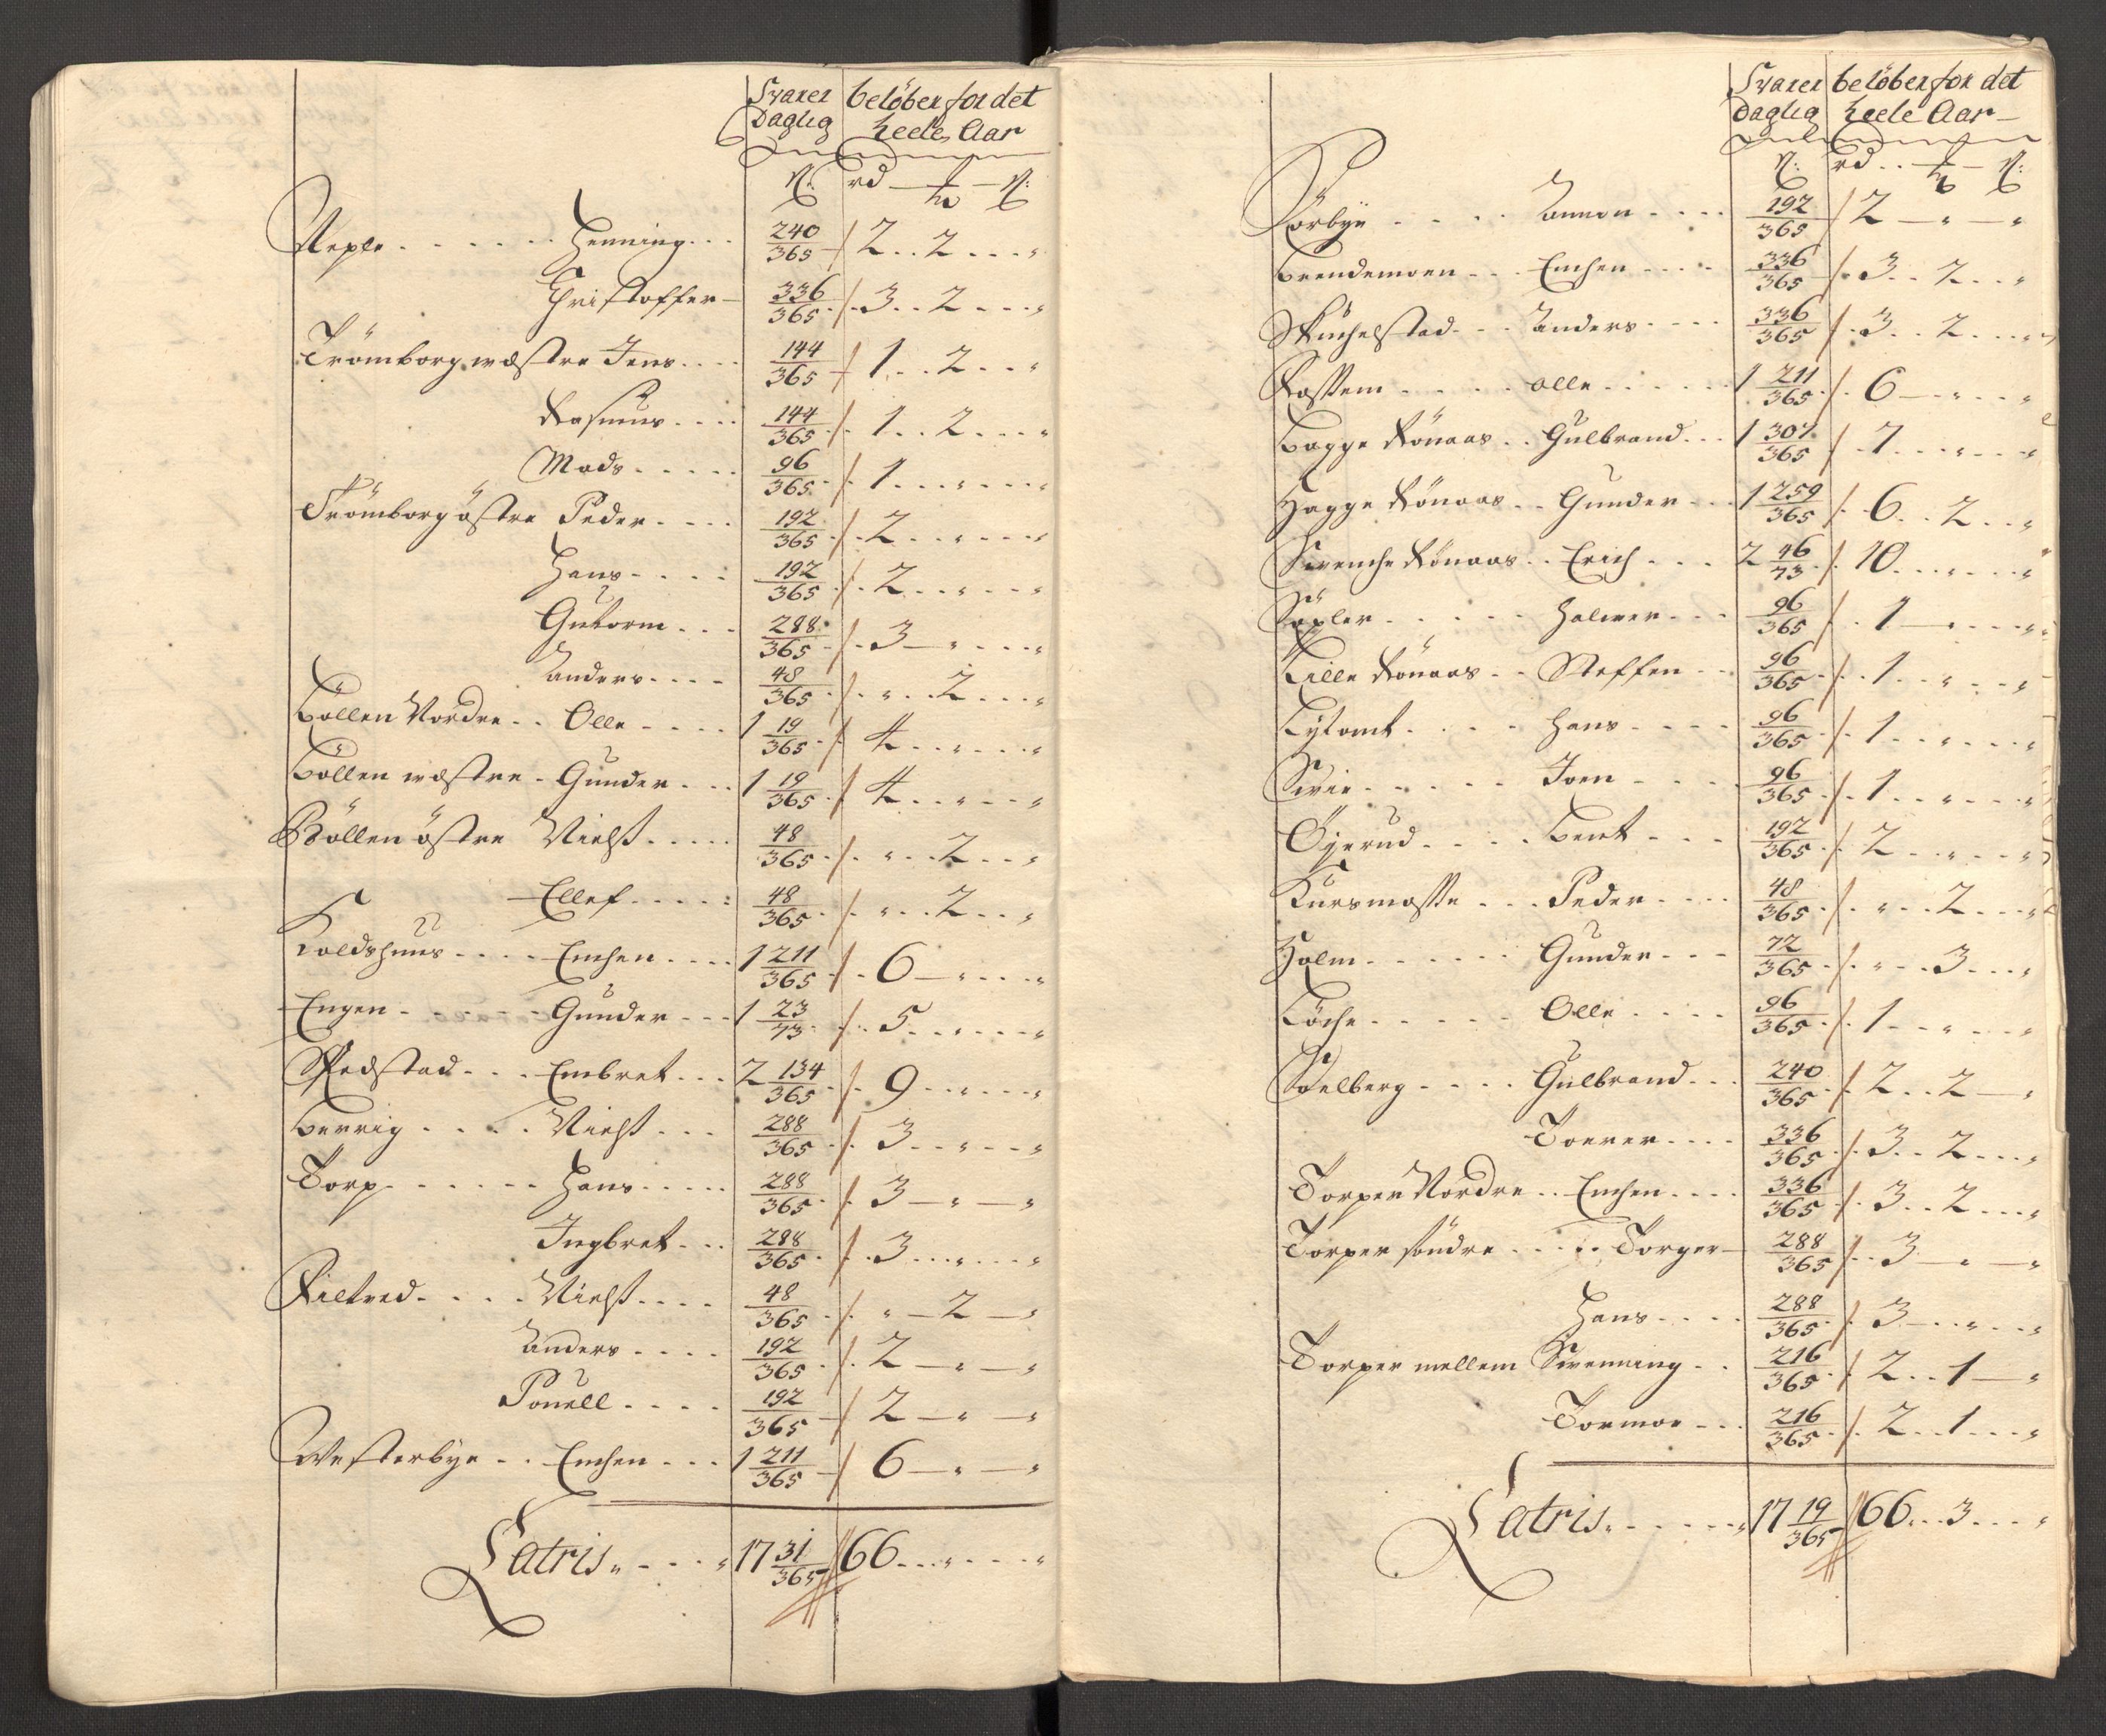 Svarer beløber for det
Daglig heele Aar
ß: rd — ₶ — ß:
Neple . . . . . . Henning . . . 240/365 2 . . 2 . . . "
Christoffer — 336/365 3 . . 2 . . . "
Trömborg wæstre Jens . . . 144/365 1 . . 2 . . . "
Rasmus . . . . 144/365 1 . . 2 . . . "
Mads . . . . . 96/365 1 . . . " . . . "
Trömborg östre Peder . . . . 192/365 2 . . . " . . . "
Hans . . . . 192/365 2 . . . " . . . "
Gutorm . . . 288/365 3 — " . . . "
Anders . . . . 48/365 " . . 2 . . . "
Böllen Nordre . . Olle . . . . 1 19/365 4 . . . " . . . "
Böllen wæstre . Gunder . . . 1 19/365 4 . . . " . . . "
Böllen östre Nielß . . . . . 48/365 " . . 2 . . . "
Ellef . . . . : 48/365 " . . 2 . . . "
Koldshuus . . . . Emhen . . . . 1 211/365 6 — " . . . "
Engen . . . . . . Gunder . . . 1 23/73 5 . . . " . . . "
Skedstad . . . Embret . . . 2 134/365 9 . . . " . . . "
Berrig . . . . . Nielß . . . 288/365 3 . . . " . . . "
Torp . . . . . . Hans . . . . . 288/365 3 — " — "
Ingbret . . . 288/365 3 . . . " . . . "
Fieltved . . . . Nielß . . . . 48/365 " — 2 — "
Anders . . . . 192/365 2 — " — "
Pouell . . . . 192/365 2 — " — "
Westerbye . . Emhen . . . 1 211/365 6 — " — "
Latris " . . . " 17 31/365 66 . . . " . . . "
Svarer beløber for det
Daglig heele Aar —
ß: rd . . ₶ — ß:
Sörbye . . . . Anmon . . . . 192/365 2 — " — "
Brendemoen . . . Emhen . . . . 336/365 3 . . 2 . . . "
Skuchelstad . . . Anders . . . . 336/365 3 . . 2 . . . "
Fossem . . . . . olle . . . . . 1 211/365 6 — " . . . "
Bagge Rönaas . . Gulbrand . . . 1 307/365 7 . . . " . . . "
Hagge Rönaas . . Gunder . . . 1 259/365 6 . . 2 . . . "
Svenche Rönaas . . Erich . . . 2 46/73 10 . . . " . . . "
Söpler . . . . . Halwer . . . 96/365 1 — " . . . "
Lille Rönaas . . Steffen . . . 96/365 1 . . . " . . . "
Lytomt . . . . Hans . . . . 96/365 1 . . . " . . . "
Svie . . . . . Joen . . . . 96/365 1 . . . " . . . "
Öyerud . . . . Bent . . . 192/365 2 . . . " . . . "
Kursmosse . . . Peder . . . . 48/365 " . . 2 . . . "
Holm . . . . . . Gunder . . . 72/365 " . . 3 . . . "
Löche . . . . . Olle . . . . 96/365 1 . . . " . . . "
Soelberg . . . . Gulbrand . . . 240/365 2 . . 2 — "
Torer . . . . 336/365 3 . . 2 . . . "
Torper Nordre . . Emhen . . . . 336/365 3 . . 2 . . . "
Torper söndre . . . . . Torger — 288/365 3 — " — "
Hans . . . . 288/365 3 — . . " . . . "
Torper mellem Svenning . . 216/365 2 . . 1 — "
Tormoe . . . 216/365 2 . . 1 . . . "
Latris . . . . . " 17 19/365 66 . . . 3 . . . "